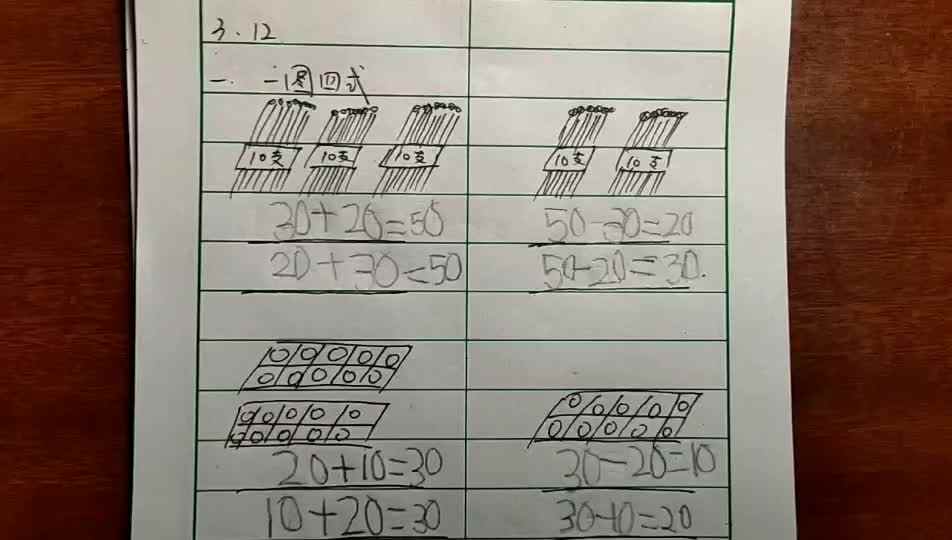 3.12
一. 一图四式
10支 10支 10支 10支 10支
30+20=50 50-30=20
20+30=50 50-20=30.
20+10=30 30-20=10
10+20=30 30-10=20